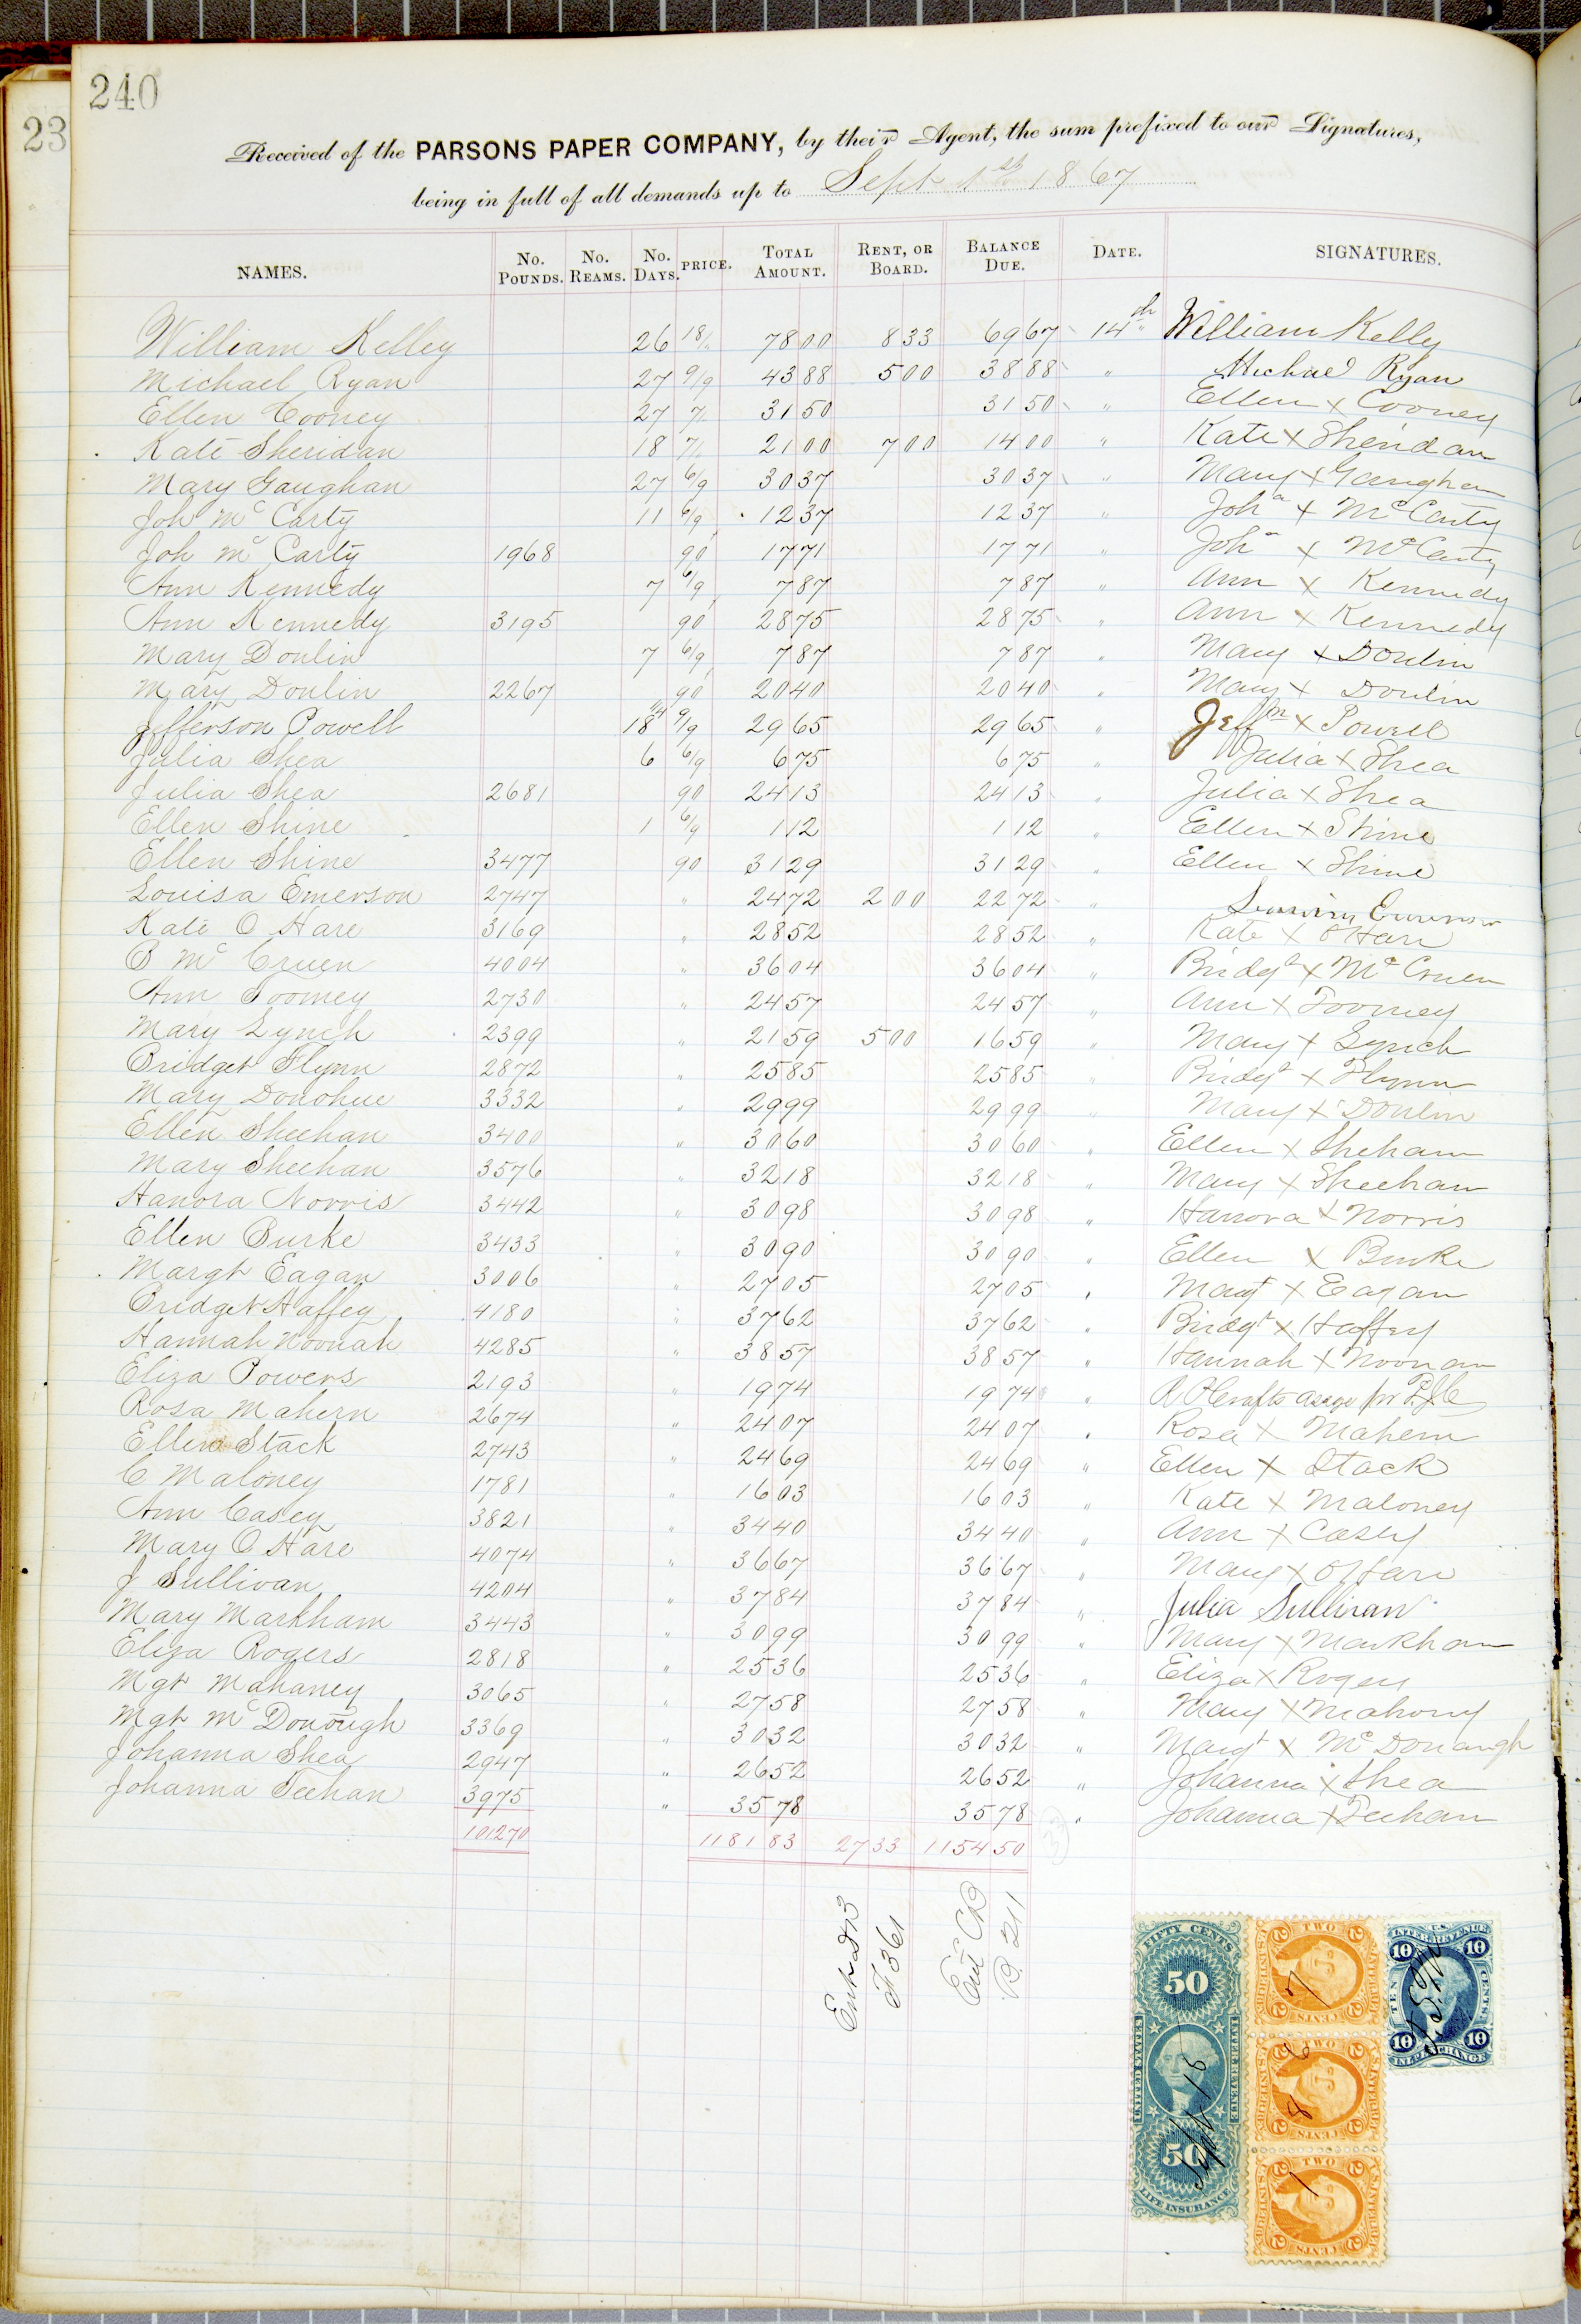 240
23
Received of the PARSONS PAPER COMPANY, by their Agent, the sum prefixed to our Signatures,
being in full of all demands up to Sept 1st 1867
NAMES. No. Pounds. No. Reams. No. Days. PRICE. Total Amount. Rent, or Board. Balance Due. Date. SIGNATURES.
William Kelley 26 18/ 78 00 8 33 69 67 14th William Kelly
Michael Ryan 27 9/9 43 88 5 00 38 88 " Michael Ryan
Ellen Cooney 27 7/ 31 50 31 50 " Ellen x Cooney
Kate Sheridan 18 7/ 21 00 7 00 14 00 " Kate x Sheridan
Mary Gaughan 27 6/9 30 37 30 37 " Mary x Gaughan
Joh McCarty 11 6/9 12 37 12 37 " Joha x McCarty
Joh McCarty 1968 90 17 71 17 71 " Joha x McCarty
Ann Kennedy 7 6/9 7 87 7 87 " Ann x Kennedy
Ann Kennedy 3195 90 28 75 28 75 " Ann x Kennedy
Mary Donlin 7 6/9 7 87 7 87 " Mary x Donlin
Mary Donlin 2267 90 20 40 20 40 " Mary x Donlin
Jefferson Powell 18 1/4 9/9 29 65 29 65 " Jeffn x Powell
Julia Shea 6 6/9 6 75 6 75 " Julia x Shea
Julia Shea 2681 90 24 13 24 13 " Julia x Shea
Ellen Shine 1 6/9 1 12 1 12 " Ellen x Shine
Ellen Shine 3477 90 31 29 31 29 " Ellen x Shine
Louisa Emerson 2747 " 24 72 2 00 22 72 " Emerson
Kate O Hare 3169 " 28 52 28 52 " Kate x O Hare
B McCruen 4004 " 36 04 36 04 " Bridgt x McCruen
Ann Toomey 2730 " 24 57 24 57 " Ann x Toomey
Mary Lynch 2399 " 21 59 5 00 16 59 " Mary x Lynch
Bridget Flynn 2872 " 25 85 25 85 " Bridgt x Flynn
Mary Donohue 3332 " 29 99 29 99 " Mary x Donlin
Ellen Sheehan 3400 " 30 60 30 60 " Ellen x Shehan
Mary Sheehan 3576 " 32 18 32 18 " Mary x Sheehan
Hanora Norris 3442 " 30 98 30 98 " Hanora x Norris
Ellen Burke 3433 " 30 90 30 90 " Ellen x Burke
Margt Eagan 3006 " 27 05 27 05 " Margt x Eagan
Bridget Haffey 4180 " 37 62 37 62 " Bridgt x Haffey
Hannah Noonah 4285 " 38 57 38 57 " Hannah x Noonan
Eliza Powers 2193 " 19 74 19 74 " R P Crafts
Rosa Mahern 2674 " 24 07 24 07 " Rosa x Mahern
Ellen Stack 2743 " 24 69 24 69 " Ellen x Stack
C Maloney 1781 " 16 03 16 03 " Kate x Maloney
Ann Casey 3821 " 34 40 34 40 " Ann x Casey
Mary O Hare 4074 " 36 67 36 67 " Mary x O Hare
J Sullivan 4204 " 37 84 37 84 " Julia Sullivan
Mary Markham 3443 " 30 99 30 99 " Mary x Markham
Eliza Rogers 2818 " 25 36 25 36 " Eliza x Rogers
Mgt Mahaney 3065 " 27 58 27 58 " Mary x Mahony
Mgt McDonough 3369 " 30 32 30 32 " Margt x McDonaugh
Johanna Shea 2947 " 26 52 26 52 " Johanna x Shea
Johanna Teehan 3975 " 35 78 35 78 " Johanna x Teehan
101270 1181 83 27 33 1154 50
Ent DB
F 361
Ent CB
P. 211
FIFTY CENTS
50
UNITED STATES
INTER. REVENUE
50
LIFE INSURANCE
Sept 15
TWO
2 2
U.S. INTER. REV.
CENTS
7
TWO
CENTS
8 6
TWO
CENTS
1
U.S.
INTER. REVENUE
10 10
TEN CENTS
10 10
INL. EXCHANGE